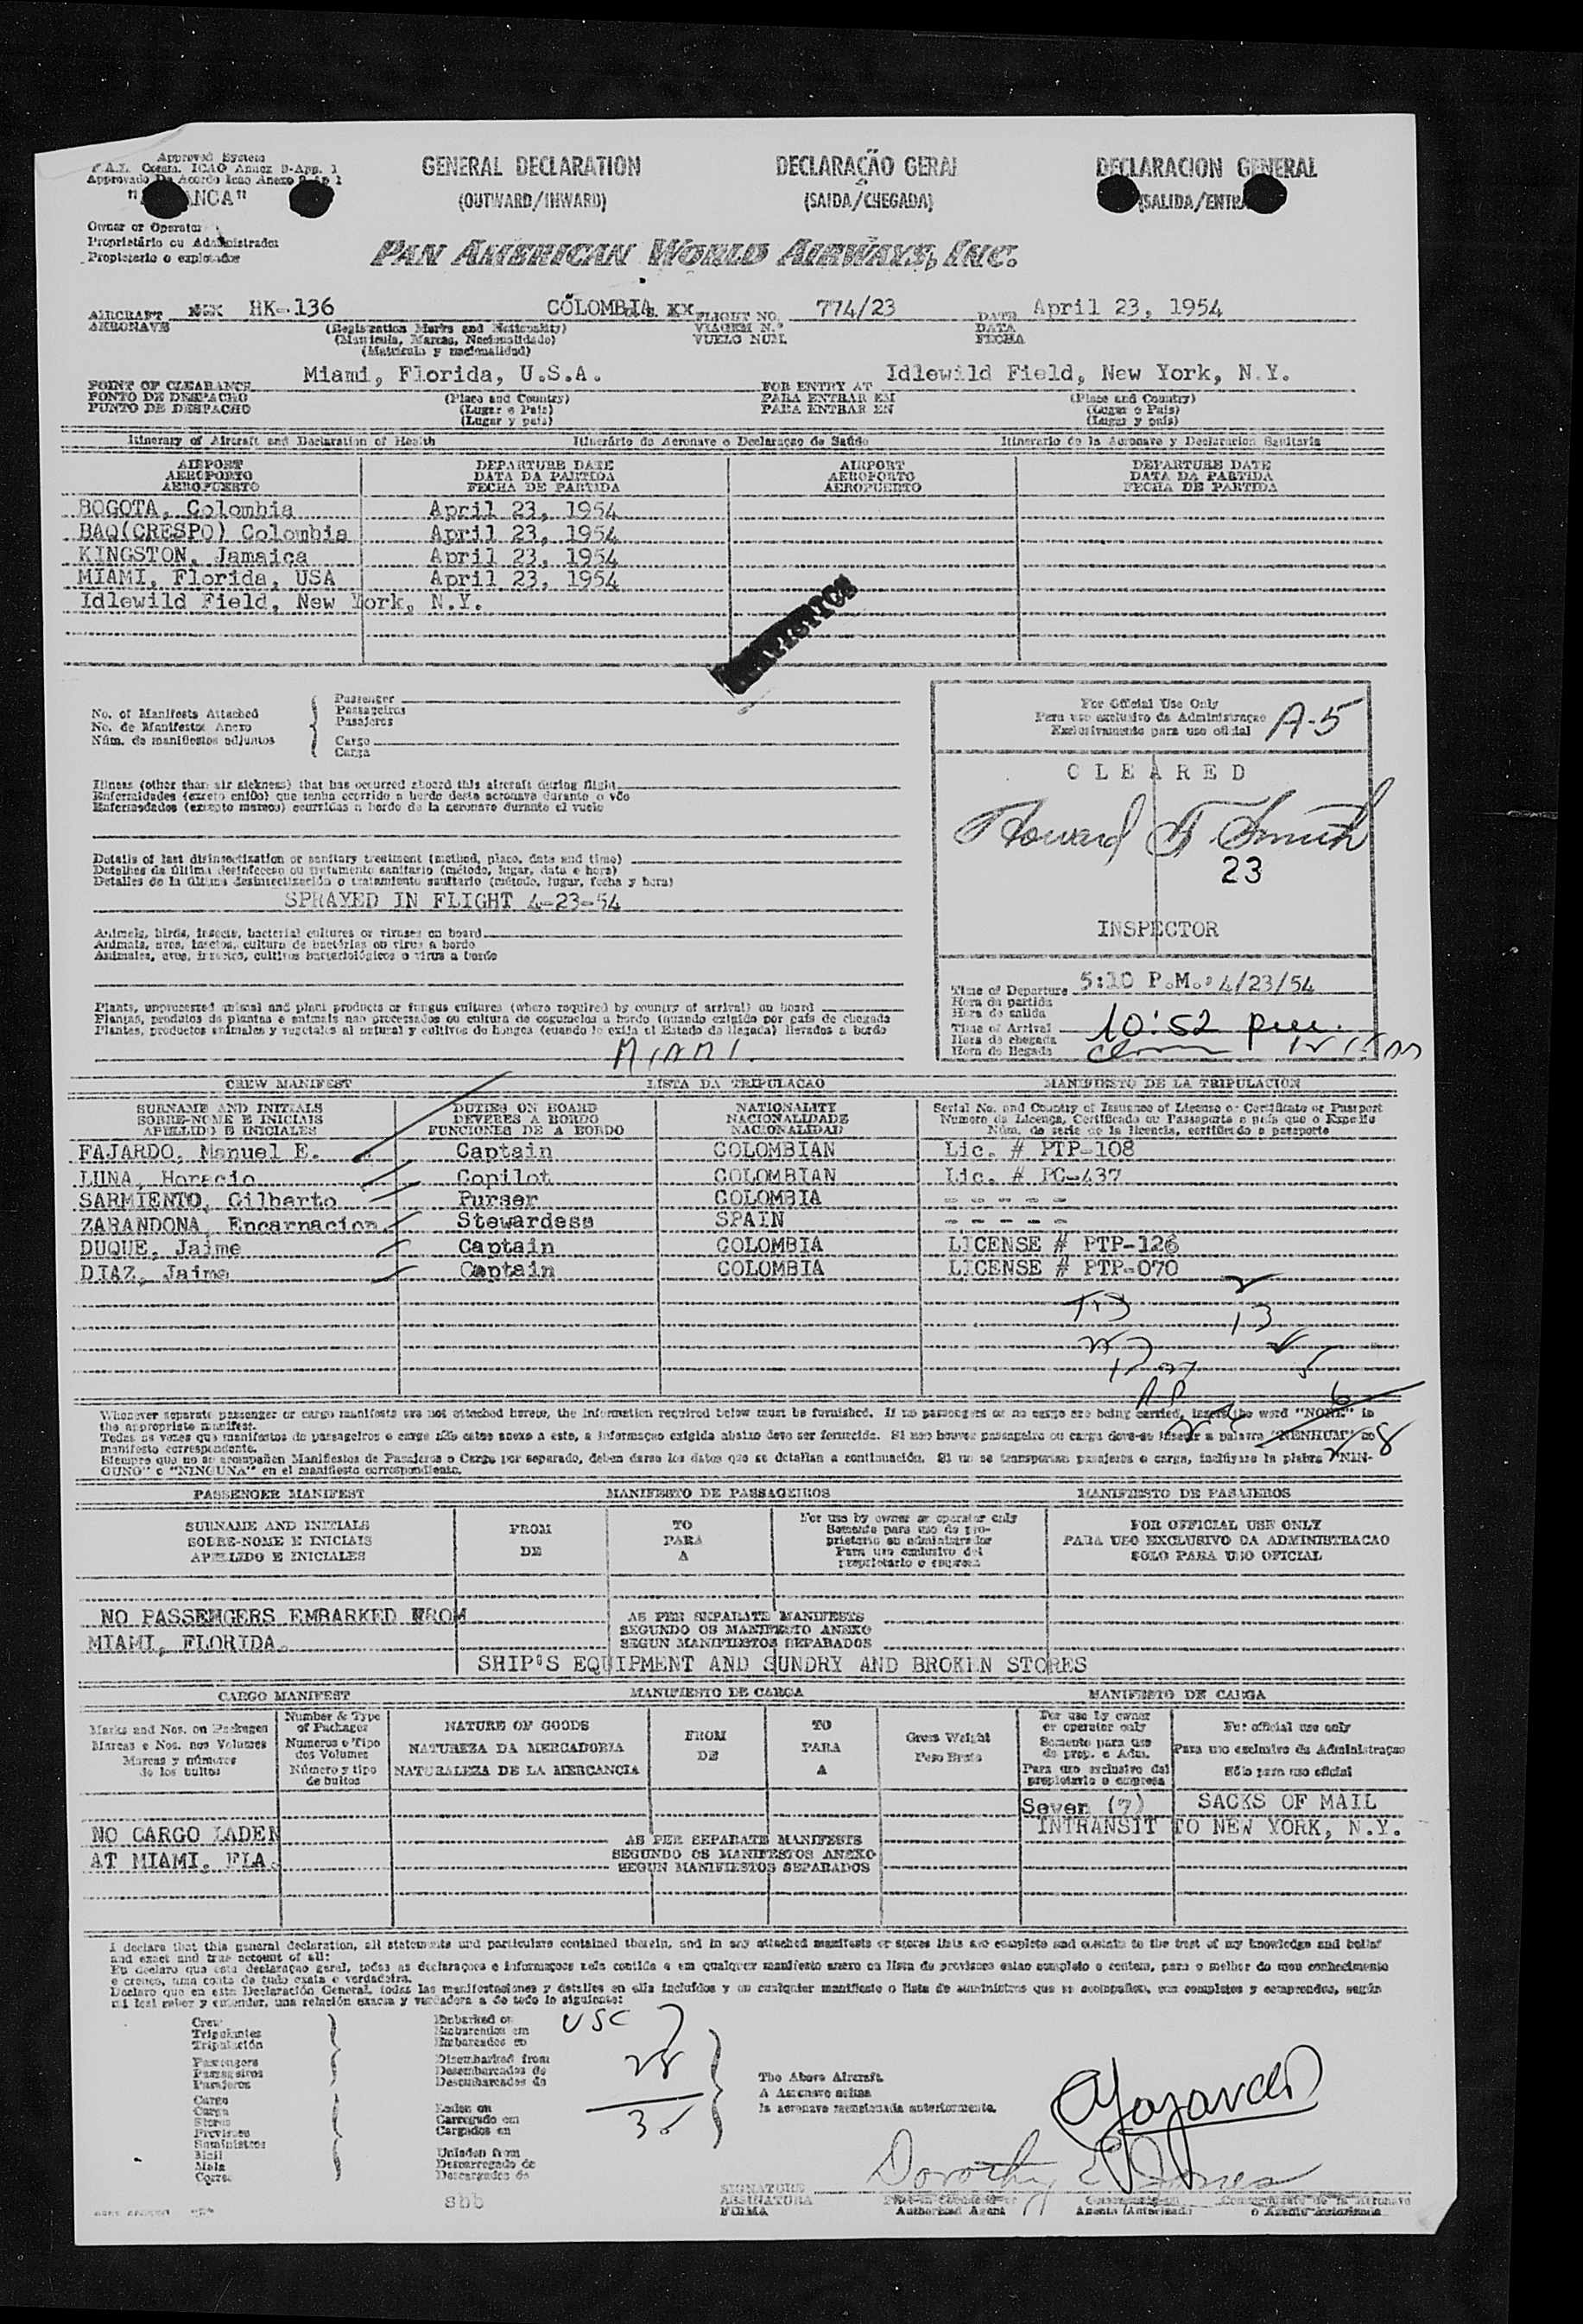 Approved System
P.A.I. Comm. ICAO Annex 9-App. 1
Approvado De Acordo Icao Anexo 9 Ap 1
GENERAL DECLARATION
(OUTWARD/INWARD)
DECLARAÇÃO GERAL
(SAIDA/CHEGADA)
DECLARACION GENERAL
(SALIDA/ENTRA
Owner or Operator
Proprietário ou Administrador
Propietario o explotador
PAN AMERICAN WORLD AIRWAYS, INC.
AIRCRAFT HK-136 COLOMBIA FLIGHT NO. 774/23 DATE April 23, 1954
AERONAVE (Registration Marks and Nationality) VIAGEM N.º DATA
(Matricula, Marcas, Nacionalidade) VUELO NUM. FECHA
(Matricula y nacionalidad)
POINT OF CLEARANCE Miami, Florida, U.S.A. FOR ENTRY AT Idlewild Field, New York, N.Y.
PONTO DE DESPACHO (Place and Country) PARA ENTRAR EM (Place and Country)
PUNTO DE DESPACHO (Lugar e Pais) PARA ENTRAR EN (Lugar e Pais)
(Lugar y pais) (Lugar y pais)
Itinerary of Aircraft and Declaration of Health Itinerário do Aeronave e Declaraçao de Saúde Itinerario de la Aeronave y Declaracion Sanitaria
AIRPORT DEPARTURE DATE AIRPORT DEPARTURE DATE
AEROPORTO DATA DA PARTIDA AEROPORTO DATA DA PARTIDA
AEROPUERTO FECHA DE PARTIDA AEROPUERTO FECHA DE PARTIDA
BOGOTA, Colombia April 23, 1954
BAQ(CRESPO) Colombia April 23, 1954
KINGSTON, Jamaica April 23, 1954
MIAMI, Florida, USA April 23, 1954
Idlewild Field, New York, N.Y.
No. of Manifests Attached
No. de Manifestos Anexo
Núm. de manifiestos adjuntos
Passenger
Passageiros
Pasajeros
Cargo
Carga
For Official Use Only
Para uso exclusivo da Administraçao
Exclusivamente para uso oficial
A-5
CLEARED
Howard T Smith
23
INSPECTOR
Illness (other than air sickness) that has occurred aboard this aircraft during flight
Enfermidades (exceto enjôo) que tenha ocorrido a bordo deste aeronave durante o vôo
Enfermedades (excepto mareos) ocurridas a bordo de la aeronave durante el vuelo
Details of last disinsectization or sanitary treatment (method, place, date and time)
Detalhes da última desinfeccao ou tratamento sanitario (método, lugar, data e hora)
Detalles de la última desinsectización o tratamiento sanitario (método, lugar, fecha y hora)
SPRAYED IN FLIGHT 4-23-54
Animals, birds, insects, bacterial cultures or viruses on board
Animais, aves, insetos, cultura de bactérias ou virus a bordo
Animales, aves, insectos, cultivos bacteriológicos o virus a bordo
Plants, unprocessed animal and plant products or fungus cultures (where required by country of arrival) on board
Plantas, produtos de plantas e animais nao processados ou cultura de cogumelos a bordo (quando exigido por país de chegada
Plantas, productos animales y vegetales al natural y cultivos de hongos (cuando lo exija el Estado de llegada) llevados a bordo
MIAMI.
Time of Departure 5:10 P.M., 4/23/54
Hora da partida
Hora de salida
Time of Arrival 10:52 pm.
Hora de chegada
Hora de llegada
CREW MANIFEST LISTA DA TRIPULACAO MANIFIESTO DE LA TRIPULACION
SURNAME AND INITIALS DUTIES ON BOARD NATIONALITY Serial No. and Country of Issuance of License or Certificate or Passport
SOBRE-NOME E INICIAIS DEVERES A BORDO NACIONALIDADE Numero da Licença, Certificado ou Passaporte e país que o Expediu
APELLIDO E INICIALES FUNCIONES DE A BORDO NACIONALIDAD Núm. de serie de la licencia, certificado o pasaporte
FAJARDO, Manuel E. Captain COLOMBIAN Lic. # PTP-108
LUNA, Horacio Copilot COLOMBIAN Lic. # PC-437
SARMIENTO, Gilberto Purser COLOMBIA - - - - -
ZARANDONA, Encarnacion Stewardess SPAIN - - - - -
DUQUE, Jaime Captain COLOMBIA LICENSE # PTP-126
DIAZ, Jaime Captain COLOMBIA LICENSE # PTP-070
13
5
6
8
Whenever separate passenger or cargo manifests are not attached hereto, the information required below must be furnished. If no passengers or no cargo are being carried, insert the word "NONE" in
the appropriate manifest.
Todas as vezes que manifestos de passageiros e carga não estao anexo a este, a informaçao exigida abaixo deve ser fornecida. Si nao houver passageiro ou carga deve-se inserir a palavra "NENHUM" no
manifesto correspondente.
Siempre que no se acompañen Manifiestos de Pasajeros o Carga por separado, deben darse los datos que se detallan a continuación. Si no se transportan pasajeros o carga, inclúyase la plabra "NIN-
GUNO" o "NINGUNA" en el manifiesto correspondiento.
PASSENGER MANIFEST MANIFESTO DE PASSAGEIROS MANIFIESTO DE PASAJEROS
SURNAME AND INITIALS FROM TO For use by owner or operator only FOR OFFICIAL USE ONLY
SOBRE-NOME E INICIAIS DE PARA Somente para uso do pro- PARA USO EXCLUSIVO DA ADMINISTRACAO
APELLIDO E INICIALES A prietario ou administrador SOLO PARA USO OFICIAL
Para uso exclusivo del
propietario o empresa
NO PASSENGERS EMBARKED FROM AS PER SEPARATE MANIFESTS
MIAMI, FLORIDA. SEGUNDO OS MANIFESTO ANEXO
SEGUN MANIFIESTOS SEPARADOS
SHIP'S EQUIPMENT AND SUNDRY AND BROKEN STORES
CARGO MANIFEST MANIFIESTO DE CARGA MANIFESTO DE CARGA
Marks and Nos. on Packages
Marcas e Nos. nos Volumes
Marcas y números
de los bultos
Number & Type
of Packages
Numeros e Tipo
dos Volumes
Número y tipo
de bultos
NATURE OF GOODS
NATUREZA DA MERCADORIA
NATURALEZA DE LA MERCANCIA
FROM
DE
TO
PARA
A
Gross Weight
Peso Bruto
For use by owner
or operator only
Somente para uso
de prop. e Adm.
Para uso exclusivo del
propietario o empresa
For official use only
Para uso exclusivo da Administraçao
Sólo para uso oficial
Seven (7) SACKS OF MAIL
INTRANSIT TO NEW YORK, N.Y.
NO CARGO LADEN AS PER SEPARATE MANIFESTS
AT MIAMI, FLA. SEGUNDO OS MANIFESTOS ANEXO
SEGUN MANIFIESTOS SEPARADOS
I declare that this general declaration, all statements and particulars contained therein, and in any attached manifests or stores lists are complete and contain to the best of my knowledge and belief
and exact and true account of all:
Eu declaro que esta declaraçao geral, todas as declaraçoes e informaçoes nela contida e em qualquer manifesto anexo ou lista de provisoes estao completo e contem, para o melhor do meu conhecimento
e crença, uma conta de tudo exata e verdadeira.
Declaro que en esta Declaración General, todas las manifestaciones y detalles en ella incluídos y en cualquier manifiesto o lista de suministros que se acompañen, son completos y comprenden, según
mi leal saber y entender, una relación exacta y verdadera a de todo lo siguiente:
Crew
Tripulantes
Tripulación
Passengers
Passageiros
Pasajeros
Cargo
Carga
Stores
Provisoes
Suministros
Mail
Mala
Correo
Embarked on
Embarcados em
Embarcados en
Disembarked from
Desembarcados de
Desembarcados de
Laden on
Carregado em
Cargados en
Unladen from
Descarregado de
Descargados de
USC 7
28
35
The Above Aircraft.
A Aeronave acima
la aeronave mencionada anteriormente.
Dorothy E Jones
sbb
SIGNATURE
ASSINATURA
FIRMA
Authorized Agent
Agente (Autorizado)
o Agente Autorizado